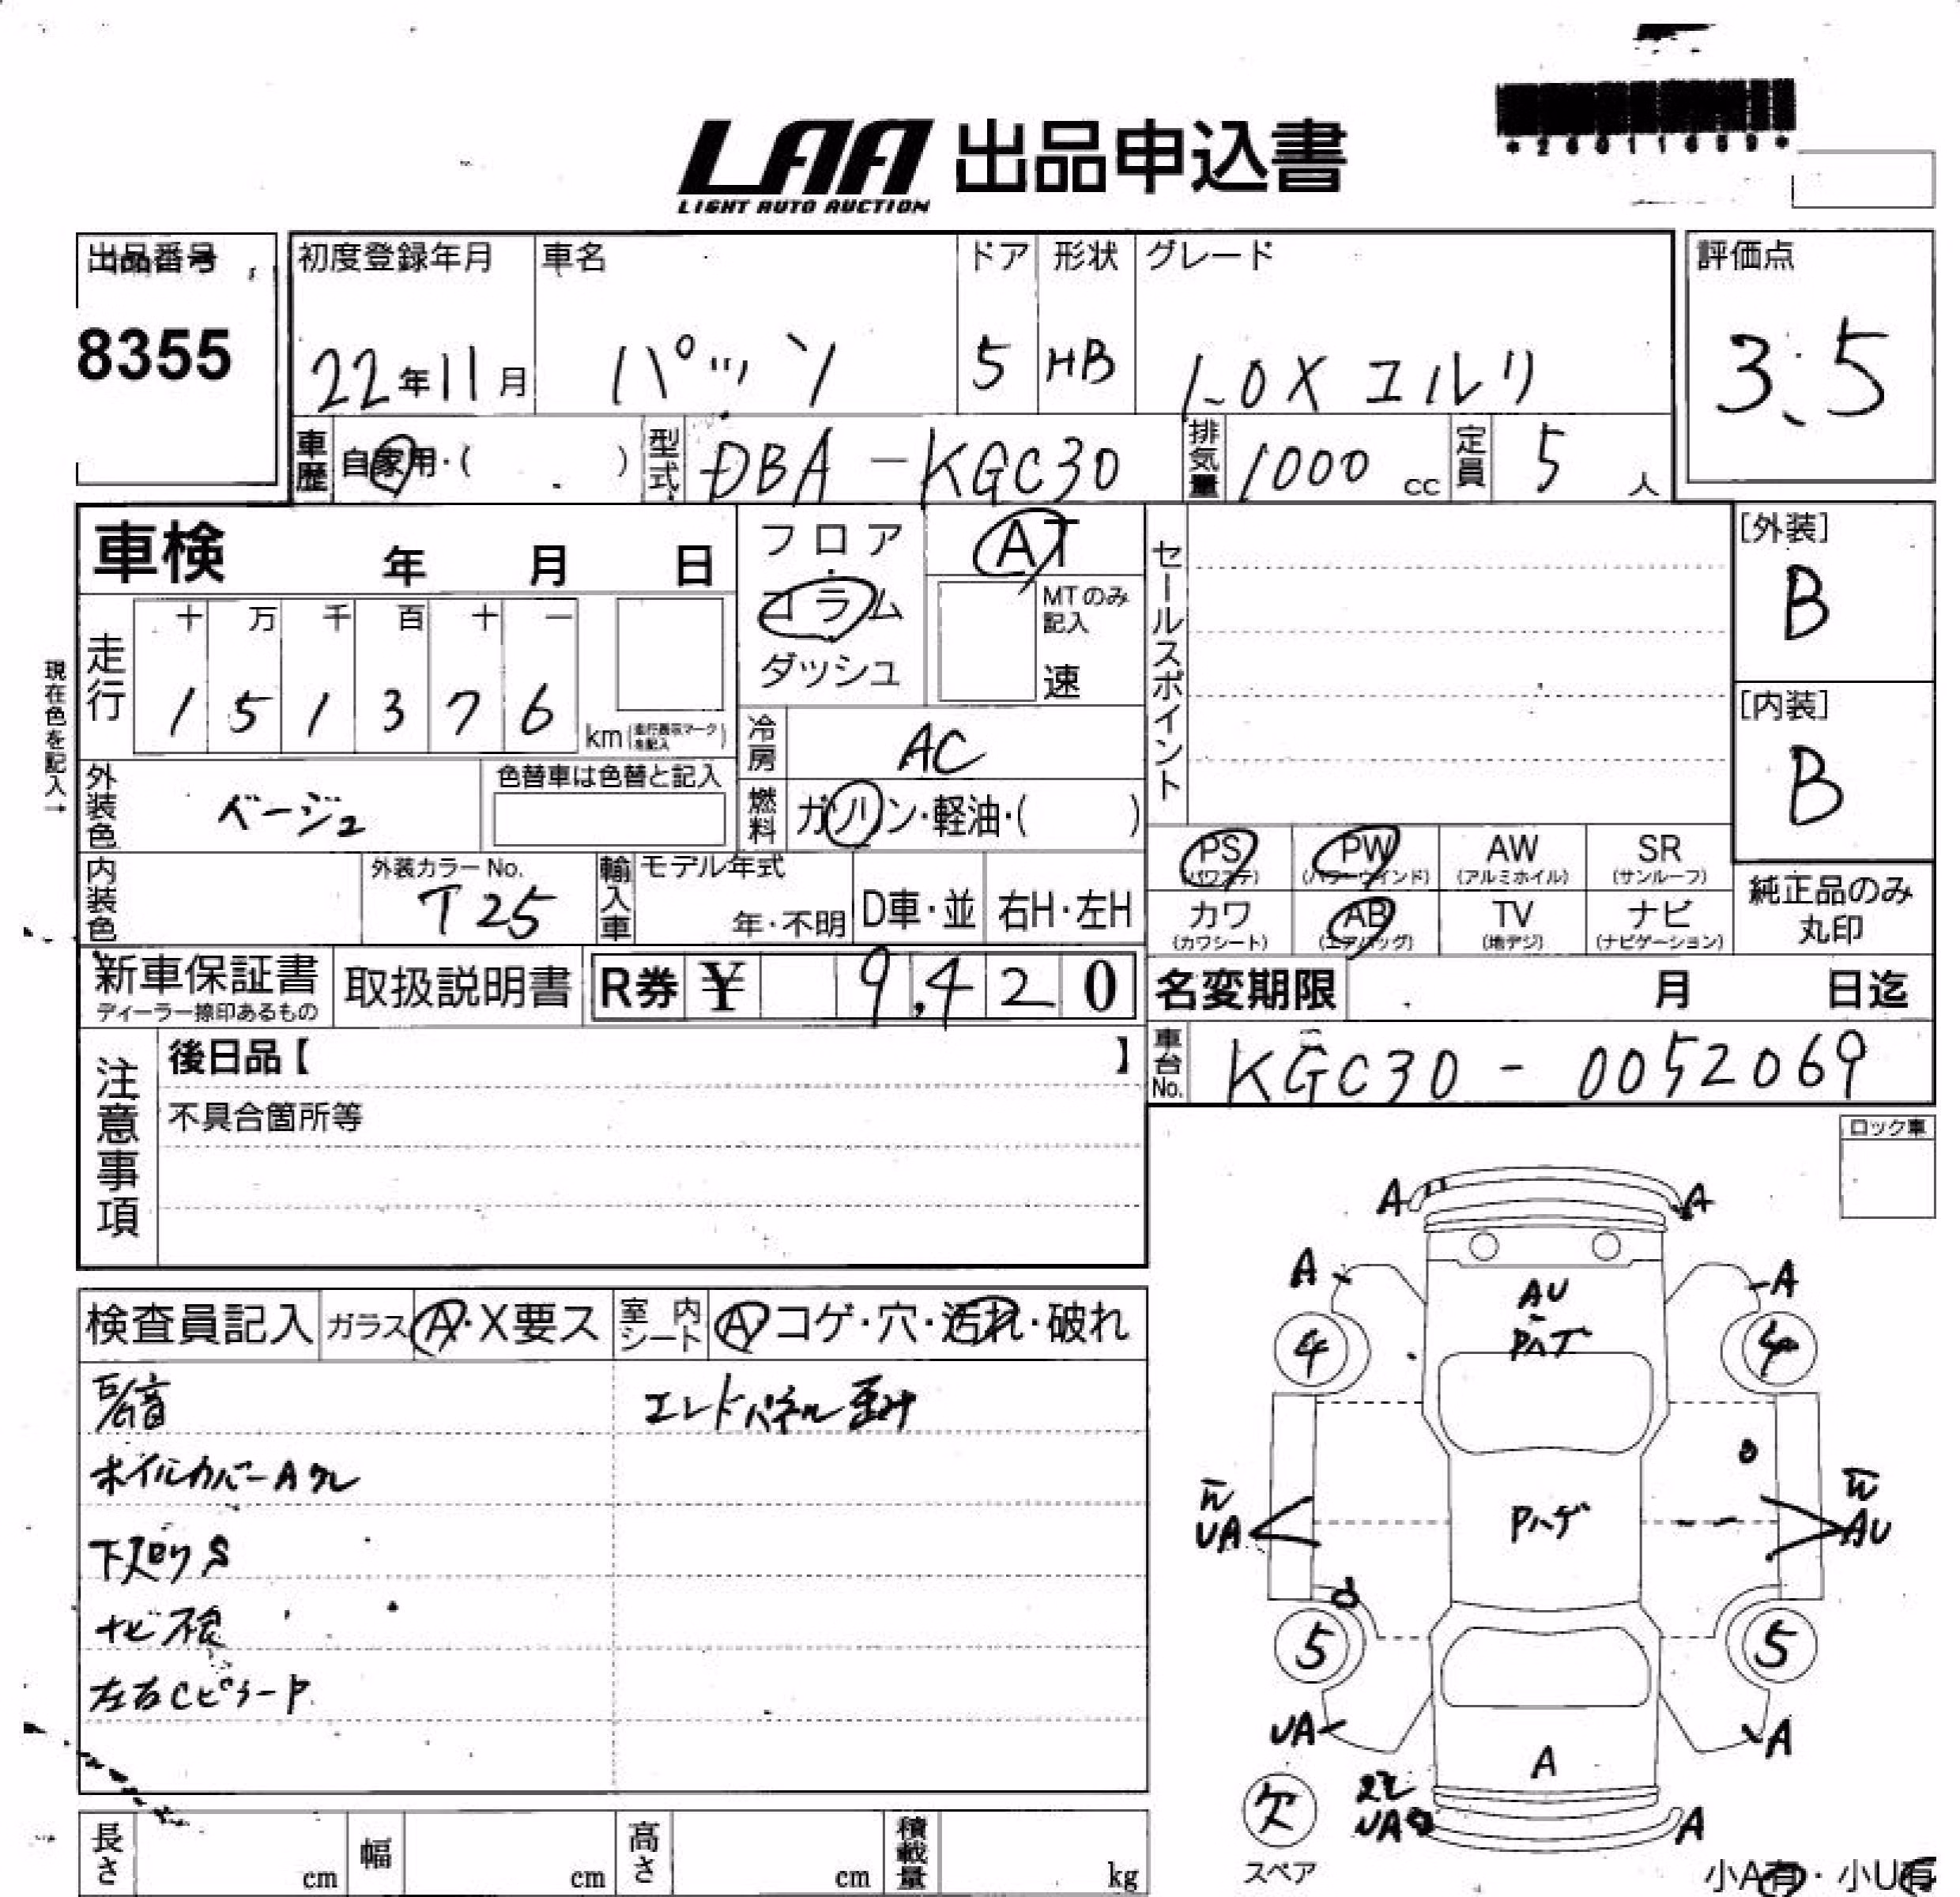 *26011659*
LAA 出品申込書
LIGHT AUTO AUCTION
出品番号
8355
初度登録年月
22年11月
車名
パッソ
ドア
5
形状
HB
グレード
1.0X エルリ
評価点
3.5
車歴
自家用・( )
型式
DBA-KGC30
排気量
1000 cc
定員
5 人
車検 年 月 日
フロア
コラム
ダッシュ
AT
MTのみ記入
速
セールスポイント
[外装]
B
[内装]
B
現在色を記入→
走行
十 万 千 百 十 一
1 5 1 3 7 6
km(走行表示マークを記入)
冷房
AC
外装色
ベージュ
色替車は色替と記入
燃料
ガソリン・軽油・( )
内装色
外装カラーNo.
T25
輸入車
モデル年式
年・不明
D車・並
右H・左H
PS
(パワステ)
PW
(パワーウインド)
AW
(アルミホイル)
SR
(サンルーフ)
カワ
(カワシート)
AB
(エアバッグ)
TV
(地デジ)
ナビ
(ナビゲーション)
純正品のみ
丸印
新車保証書
ディーラー捺印あるもの
取扱説明書
R券 ¥ 9,420
名変期限 月 日迄
車台No.
KGC30-0052069
注意事項
後日品【 】
不具合箇所等
ロック車
検査員記入
ガラス A・X要ス
室内シート
A コゲ・穴・汚れ・破れ
異音
ホイルカバーAワレ
下廻りS
ナビ不良
左右Cピラー P
エンドパネル歪み
A A
A A
AU
Pハゲ
4 4
Pハゲ
UA
AU
5 5
UA A
A
欠
スペア
UA
A
小A有・小U有
長さ cm
幅 cm
高さ cm
積載量 kg